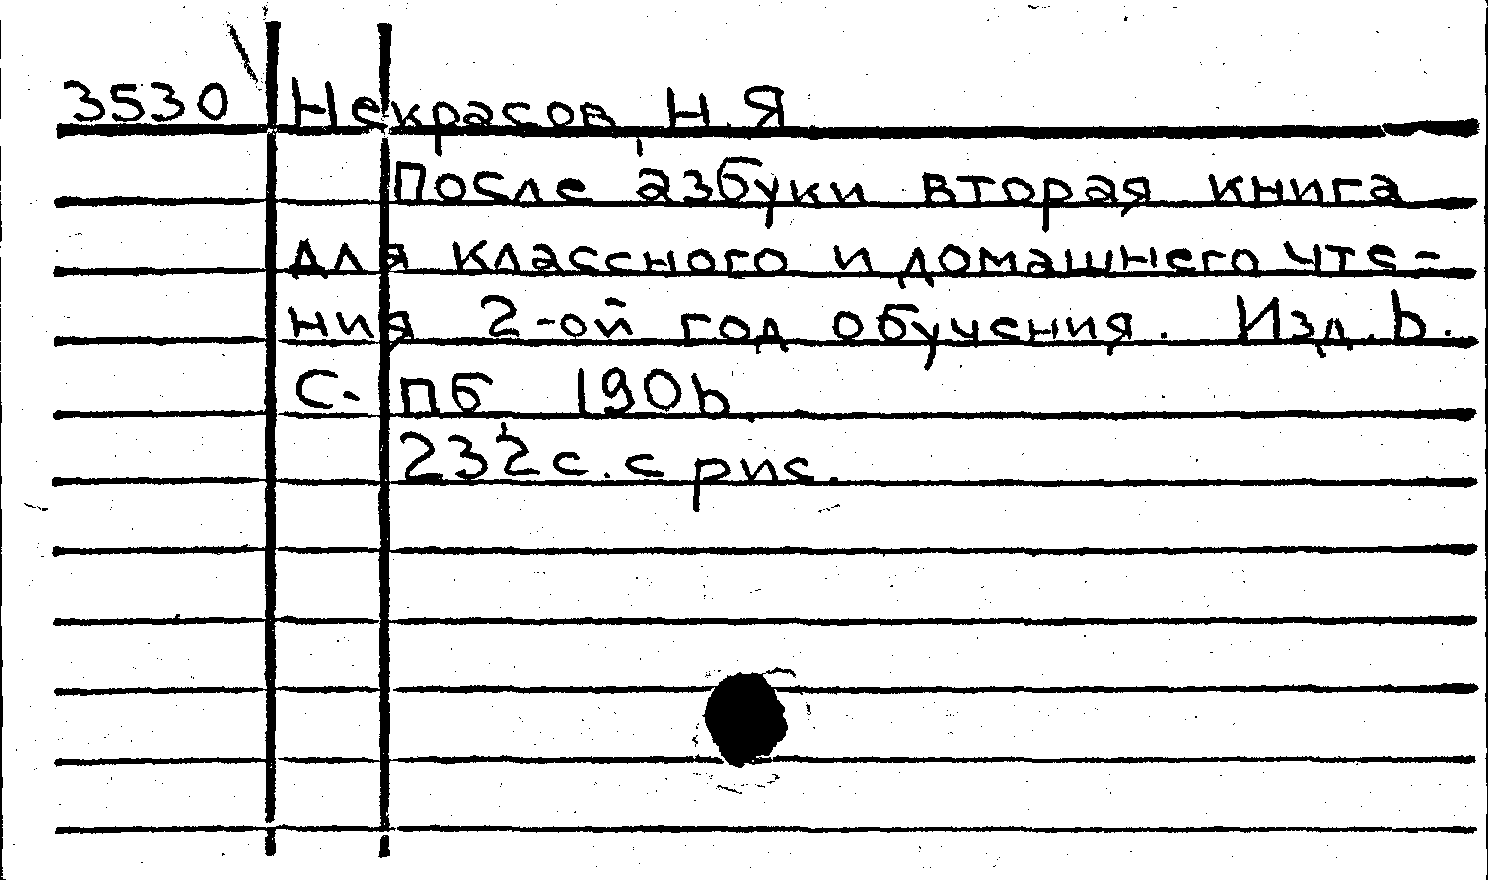 3530 Некрасов, Н.Я
После азбуки вторая книга
для классного и домашнего чте-
ния 2-ой год обучения. Изд. 6.
С-пб 1906
232 с. с рис.